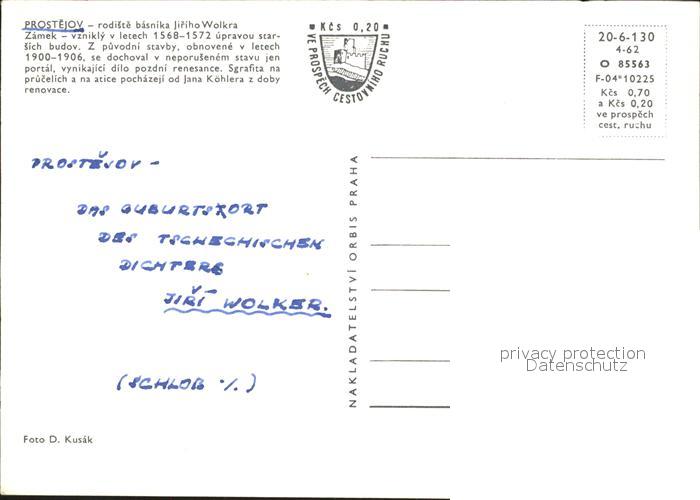 PROSTĚJOV – rodiště básníka Jiřího Wolkra
Zámek – vzniklý v letech 1568–1572 úpravou star-
ších budov. Z původní stavby, obnovené v letech
1900–1906, se dochoval v neporušeném stavu jen
portál, vynikající dílo pozdní renesance. Sgrafita na
průčelích a na atice pocházejí od Jana Köhlera z doby
renovace.
Kčs 0,20
VE PROSPĚCH CESTOVNÍHO RUCHU
20-6-130
4-62
O 85563
F-04*10225
Kčs 0,70
a Kčs 0,20
ve prospěch
cest. ruchu
PROSTĚJOV –
DAS GUBURTSKORT
DES TSCHECHISCHEN
DICHTERS
JIŘÍ WOLKER.
(SCHLOß ·/.)
NAKLADATELSTVÍ ORBIS PRAHA
privacy protection
Datenschutz
Foto D. Kusák